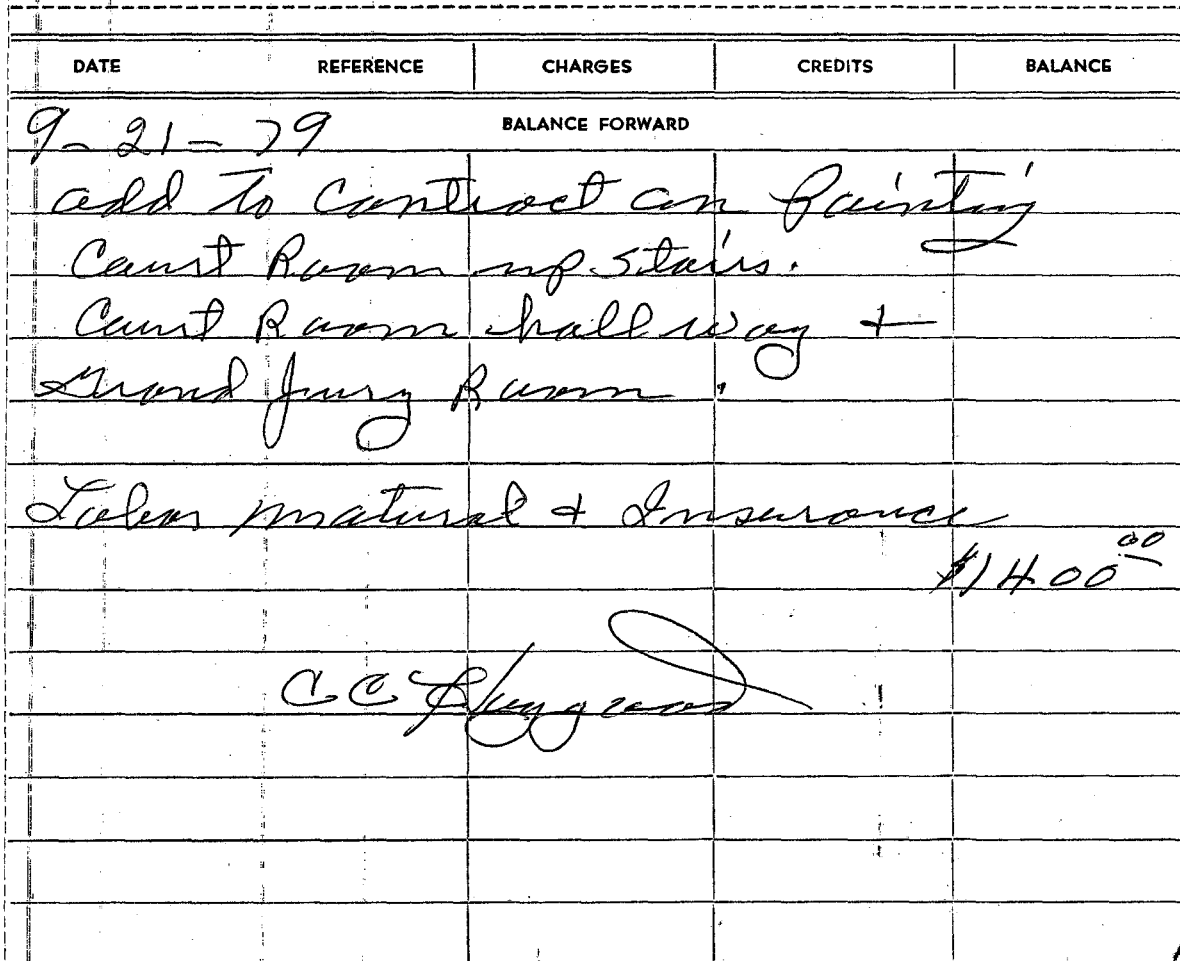 DATE REFERENCE CHARGES CREDITS BALANCE
9-21-79 BALANCE FORWARD
add to Contract on Painting
Court Room up stairs.
Court Room hall way +
Grand Jury Room.
Labor matural + Insurance
$1400.00
C C Haygood